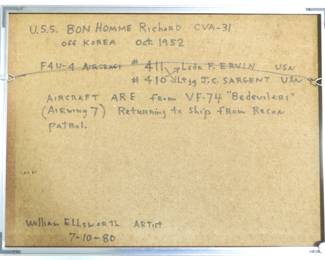 U.S.S. BON HOMME RICHARD CVA-31
OFF KOREA Oct. 1952
F4U-4 AIRCRAFT # 411 Lcdr F. ERVIN USN
# 410 Ltjg J.C. SARGENT USN
AIRCRAFT ARE From VF-74 "Bedevilers"
(AIRWING 7) Returning to Ship From Recon
patrol.
William Ellsworth ARTIST
7-10-80